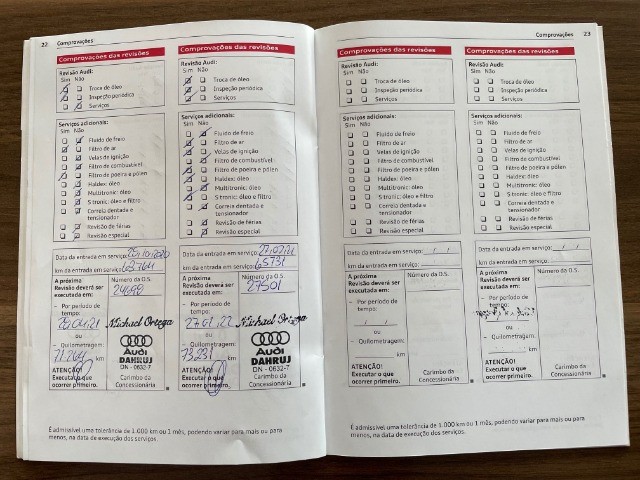 22 Comprovações
Comprovações das revisões
Revisão Audi:
Sim Não
Troca de óleo
Inspeção periódica
Serviços
Serviços adicionais:
Sim Não
Fluido de freio
Filtro de ar
Velas de ignição
Filtro de combustível
Filtro de poeira e pólen
Haldex: óleo
Multitronic: óleo
S tronic: óleo e filtro
Correia dentada e
tensionador
Revisão de férias
Revisão especial
Data da entrada em serviço:
km da entrada em serviço:
A próxima
Revisão deverá ser
executada em:
Número da O.S.
– Por período de
tempo:
Michael Ortega
ou
– Quilometragem:
71.764 km
Audi
DAHRUJ
DN - 0632-7
ATENÇÃO!
Executar o que
ocorrer primeiro.
Carimbo da
Concessionária
Comprovações das revisões
Revisão Audi:
Sim Não
Troca de óleo
Inspeção periódica
Serviços
Serviços adicionais:
Sim Não
Fluido de freio
Filtro de ar
Velas de ignição
Filtro de combustível
Filtro de poeira e pólen
Haldex: óleo
Multitronic: óleo
S tronic: óleo e filtro
Correia dentada e
tensionador
Revisão de férias
Revisão especial
Data da entrada em serviço:
km da entrada em serviço: 65731
A próxima
Revisão deverá ser
executada em:
Número da O.S.
27501
– Por período de
tempo:
Michael Ortega
ou
– Quilometragem:
km
Audi
DAHRUJ
DN - 0632-7
ATENÇÃO!
Executar o que
ocorrer primeiro.
Carimbo da
Concessionária
É admissível uma tolerância de 1.000 km ou 1 mês, podendo variar para mais ou para
menos, na data de execução dos serviços.
Comprovações 23
Comprovações das revisões
Revisão Audi:
Sim Não
Troca de óleo
Inspeção periódica
Serviços
Serviços adicionais:
Sim Não
Fluido de freio
Filtro de ar
Velas de ignição
Filtro de combustível
Filtro de poeira e pólen
Haldex: óleo
Multitronic: óleo
S tronic: óleo e filtro
Correia dentada e
tensionador
Revisão de férias
Revisão especial
Data da entrada em serviço: / /
km da entrada em serviço:
A próxima
Revisão deverá ser
executada em:
Número da O.S.
– Por período de
tempo:
/ /
ou
– Quilometragem:
km
ATENÇÃO!
Executar o que
ocorrer primeiro.
Carimbo da
Concessionária
Comprovações das revisões
Revisão Audi:
Sim Não
Troca de óleo
Inspeção periódica
Serviços
Serviços adicionais:
Sim Não
Fluido de freio
Filtro de ar
Velas de ignição
Filtro de combustível
Filtro de poeira e pólen
Haldex: óleo
Multitronic: óleo
S tronic: óleo e filtro
Correia dentada e
tensionador
Revisão de férias
Revisão especial
Data da entrada em serviço: / /
km da entrada em serviço:
A próxima
Revisão deverá ser
executada em:
Número da O.S.
– Por período de
tempo:
ou
– Quilometragem:
km
ATENÇÃO!
Executar o que
ocorrer primeiro.
Carimbo da
Concessionária
É admissível uma tolerância de 1.000 km ou 1 mês, podendo variar para mais ou para
menos, na data de execução dos serviços.